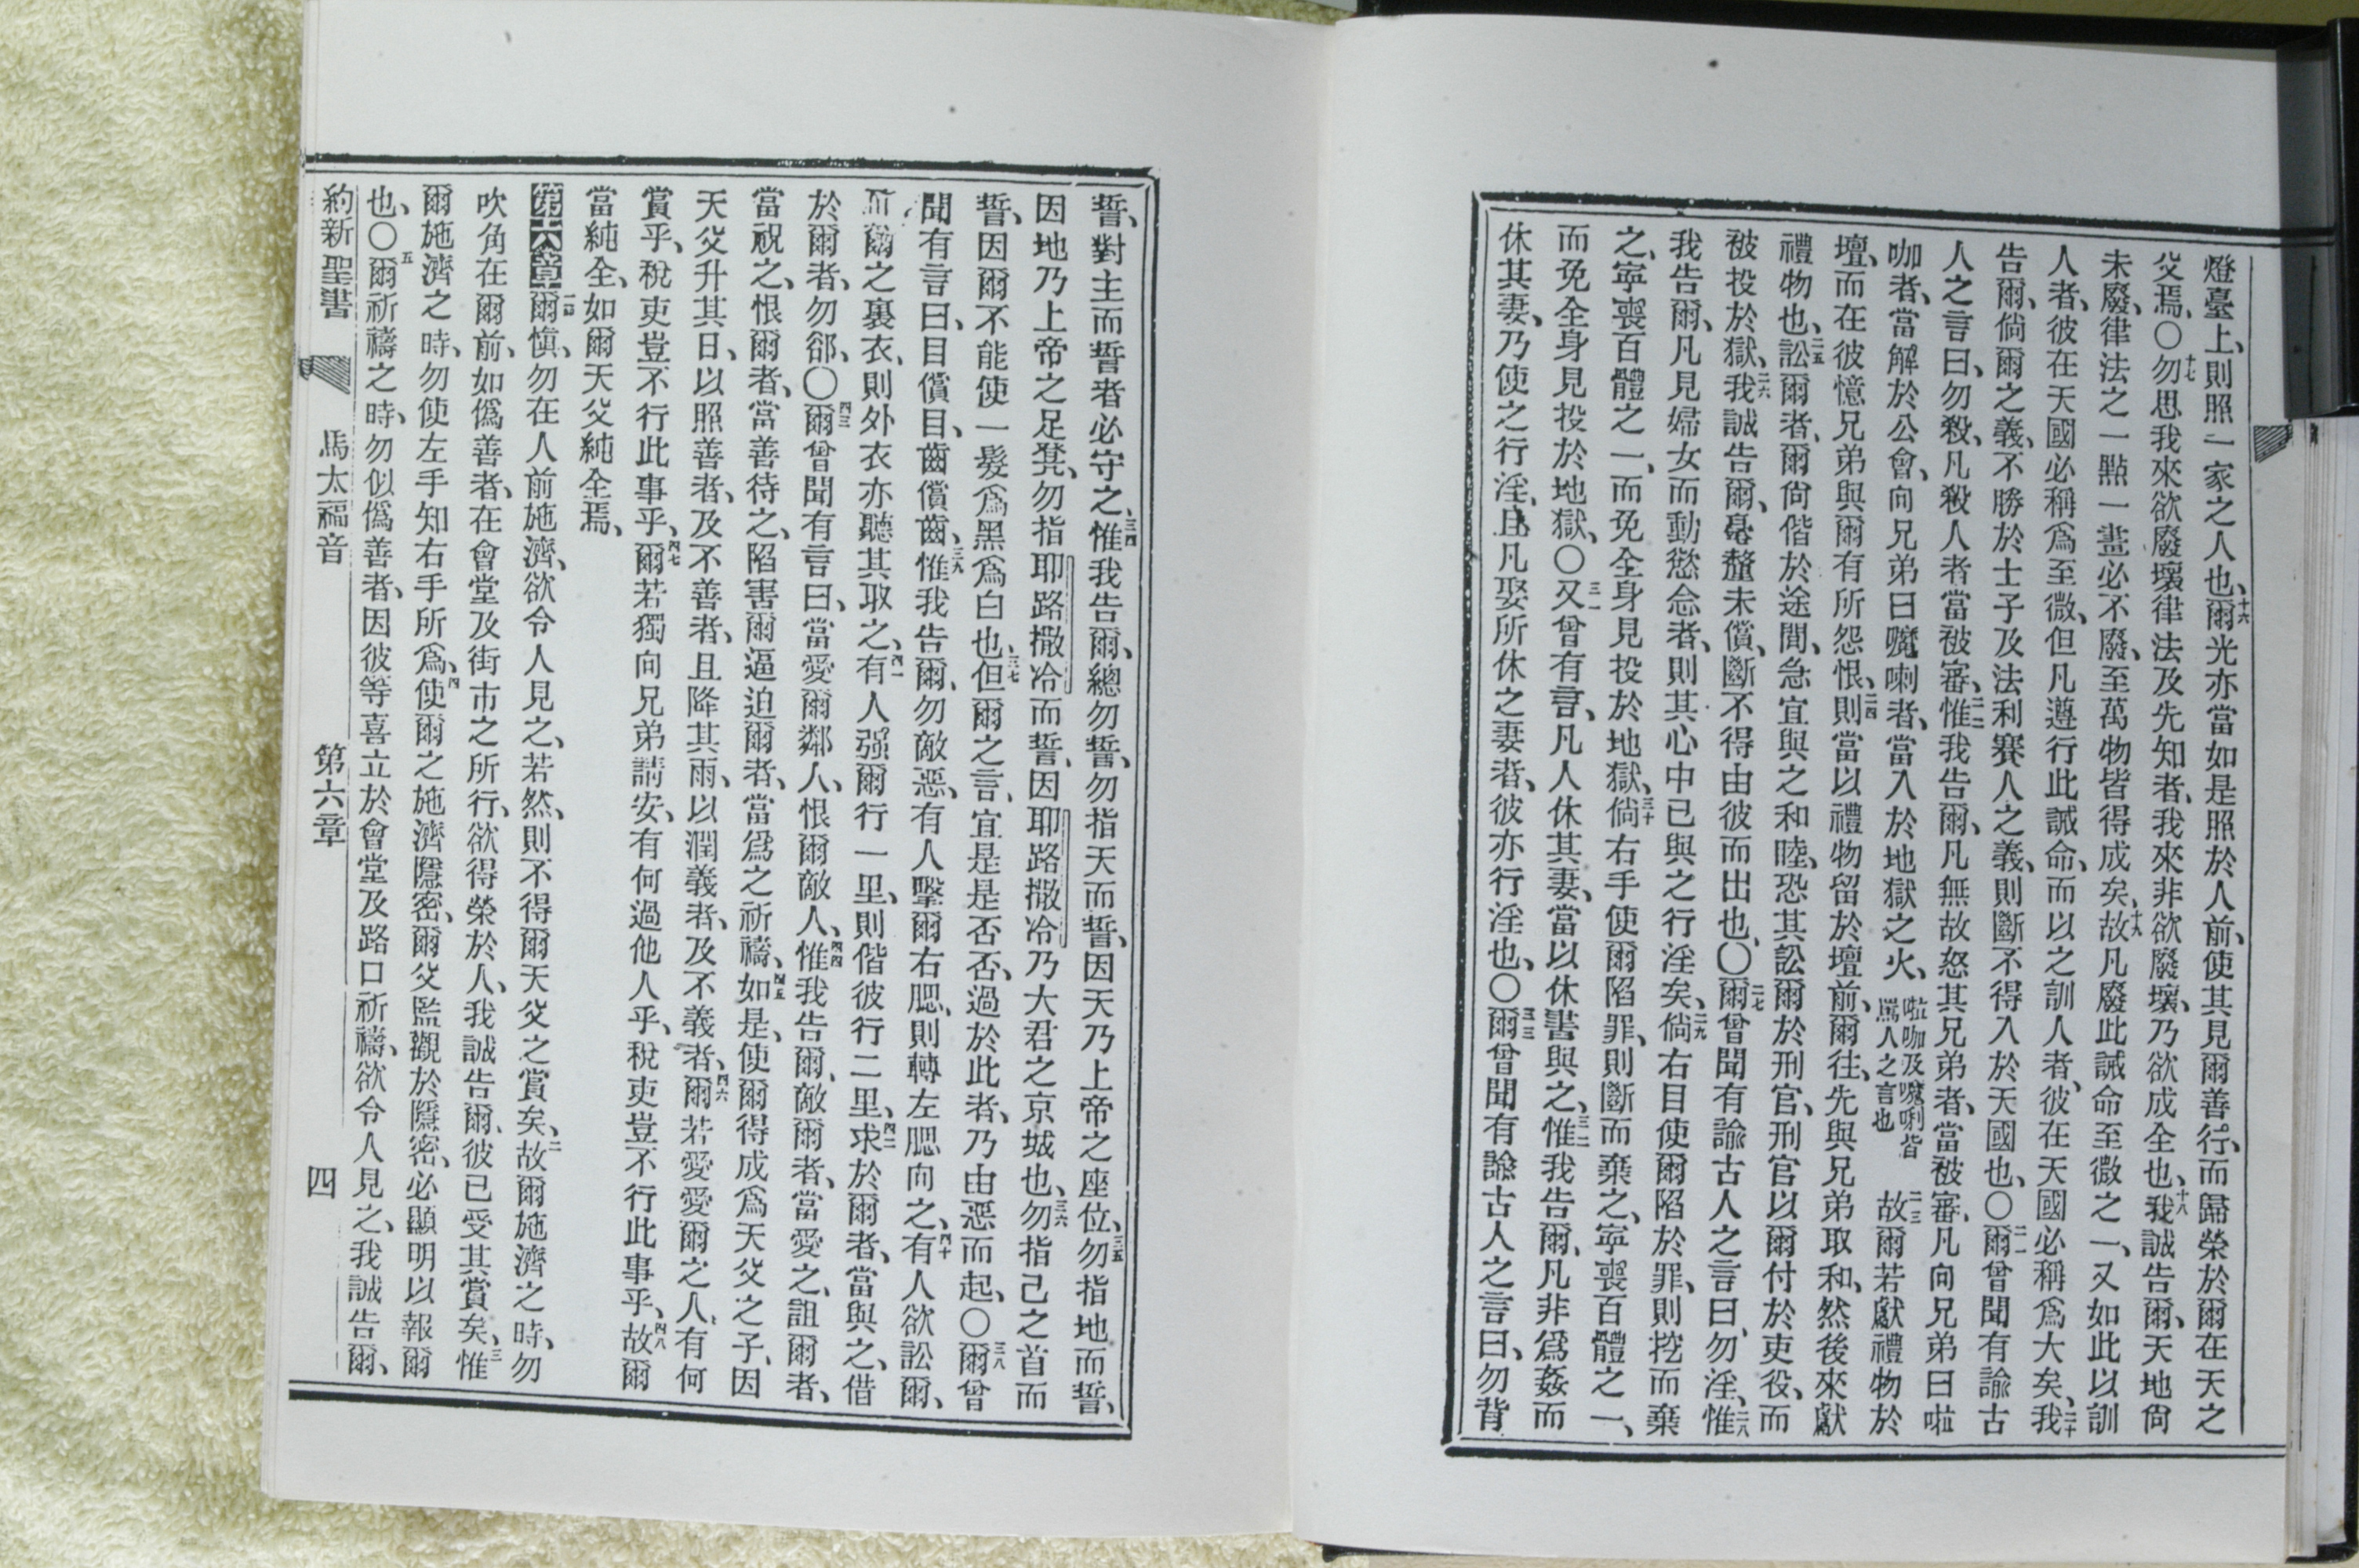 燈臺上、則照一家之人也、十六爾光亦當如是照於人前、使其見爾善行、而歸榮於爾在天之
父焉、〇十七勿思我來欲廢壞律法及先知者、我來非欲廢壞、乃欲成全也、十八我誠告爾、天地尙
未廢、律法之一點一畫必不廢、至萬物皆得成矣、十九故凡廢此誡命至微之一、又如此以訓
人者、彼在天國必稱爲至微、但凡遵行此誡命、而以之訓人者、彼在天國必稱爲大矣、二十我
告爾、倘爾之義、不勝於士子及法利賽人之義、則斷不得入於天國也、〇二一爾曾聞有諭古
人之言曰、勿殺、凡殺人者當被審、二二惟我告爾、凡無故怒其兄弟者、當被審、凡向兄弟曰啦
咖者、當解於公會、向兄弟曰嚰喇者、當入於地獄之火、啦咖及嚰唎皆罵人之言也 二三故爾若獻禮物於
壇、而在彼憶兄弟與爾有所怨恨、二四則當以禮物留於壇前、爾往、先與兄弟取和、然後來獻
禮物也、二五訟爾者、爾尙偕於途間、急宜與之和睦、恐其訟爾於刑官、刑官以爾付於吏役、而
被投於獄、二六我誠告爾、毫釐未償、斷不得由彼而出也、〇二七爾曾聞有諭古人之言曰、勿淫、二八惟
我告爾、凡見婦女而動慾念者、則其心中已與之行淫矣、二九倘右目使爾陷於罪、則挖而棄
之、寧喪百體之一、而免全身見投於地獄、三十倘右手使爾陷罪、則斷而棄之、寧喪百體之一、
而免全身見投於地獄、〇三一又曾有言、凡人休其妻、當以休書與之、三二惟我告爾、凡非爲姦而
休其妻、乃使之行淫、且凡娶所休之妻者、彼亦行淫也、〇三三爾曾聞有諭古人之言曰、勿背
誓、對主而誓者必守之、三四惟我告爾、總勿誓、勿指天而誓、因天乃上帝之座位、三五勿指地而誓、
因地乃上帝之足凳、勿指耶路撒冷而誓、因耶路撒冷乃大君之京城也、三六勿指己之首而
誓、因爾不能使一髮爲黑爲白也、三七但爾之言、宜是是否否、過於此者、乃由惡而起、〇三八爾曾
聞有言曰、目償目、齒償齒、三九惟我告爾、勿敵惡、有人擊爾右腮、則轉左腮向之、四十有人欲訟爾、
而爾之裏衣、則外衣亦聽其取之、四一有人强爾行一里、則偕彼行二里、四二求於爾者、當與之、借
於爾者、勿郤、〇四三爾曾聞有言曰、當愛爾鄰人、恨爾敵人、四四惟我告爾、敵爾者、當愛之、詛爾者、
當祝之、恨爾者、當善待之、陷害爾逼迫爾者、當爲之祈禱、四五如是、使爾得成爲天父之子、因
天父升其日、以照善者、及不善者、且降其雨、以潤義者、及不義者、四六爾若愛愛爾之人、有何
賞乎、稅吏豈不行此事乎、四七爾若獨向兄弟請安、有何過他人乎、稅吏豈不行此事乎、四八故爾
當純全、如爾天父純全焉、
第六章 一爾愼、勿在人前施濟、欲令人見之、若然、則不得爾天父之賞矣、二故爾施濟之時、勿
吹角在爾前、如僞善者、在會堂及街市之所行、欲得榮於人、我誠告爾、彼已受其賞矣、三惟
爾施濟之時、勿使左手知右手所爲、四使爾之施濟隱密、爾父監觀於隱密、必顯明以報爾
也、〇五爾祈禱之時、勿似僞善者、因彼等喜立於會堂及路口祈禱、欲令人見之、我誠告爾、
約新聖書 馬太福音 第六章 四